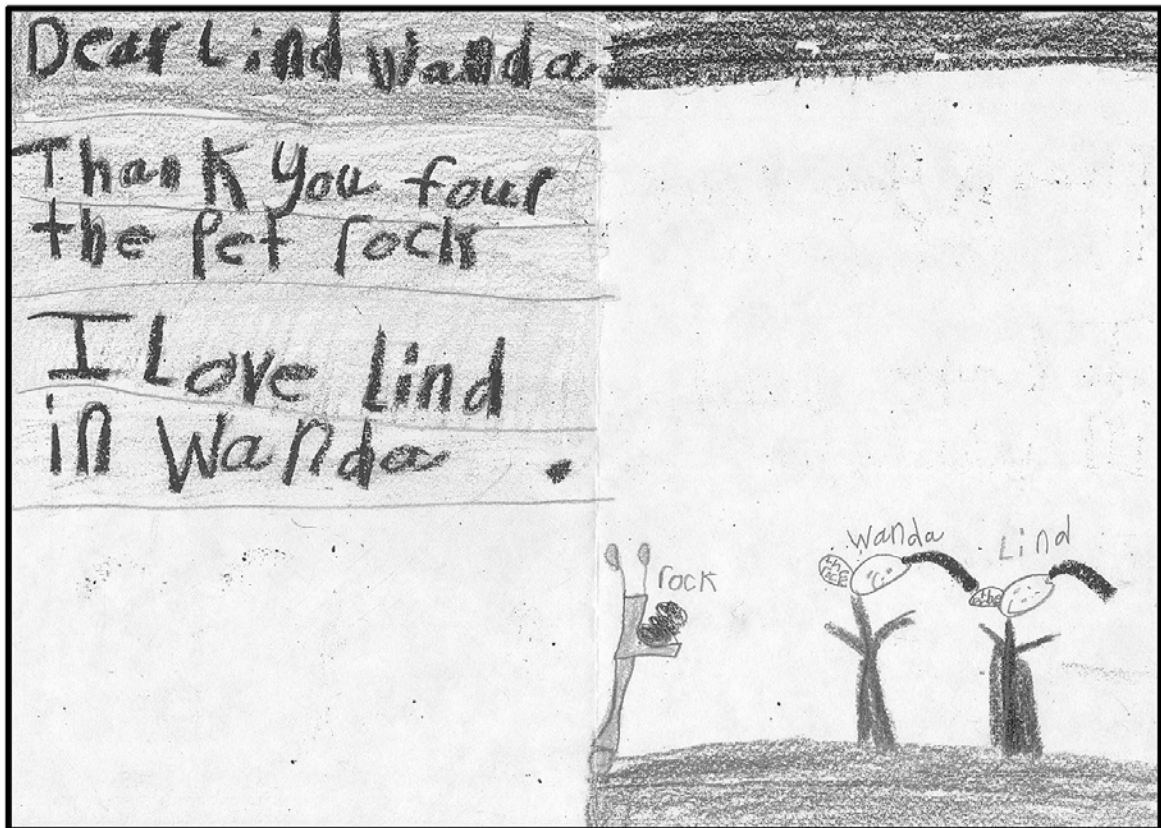 Dear Lind Wanda
Thank you four
the Pet rock
I Love Lind
in Wanda .
rock
Wanda
Lind
the